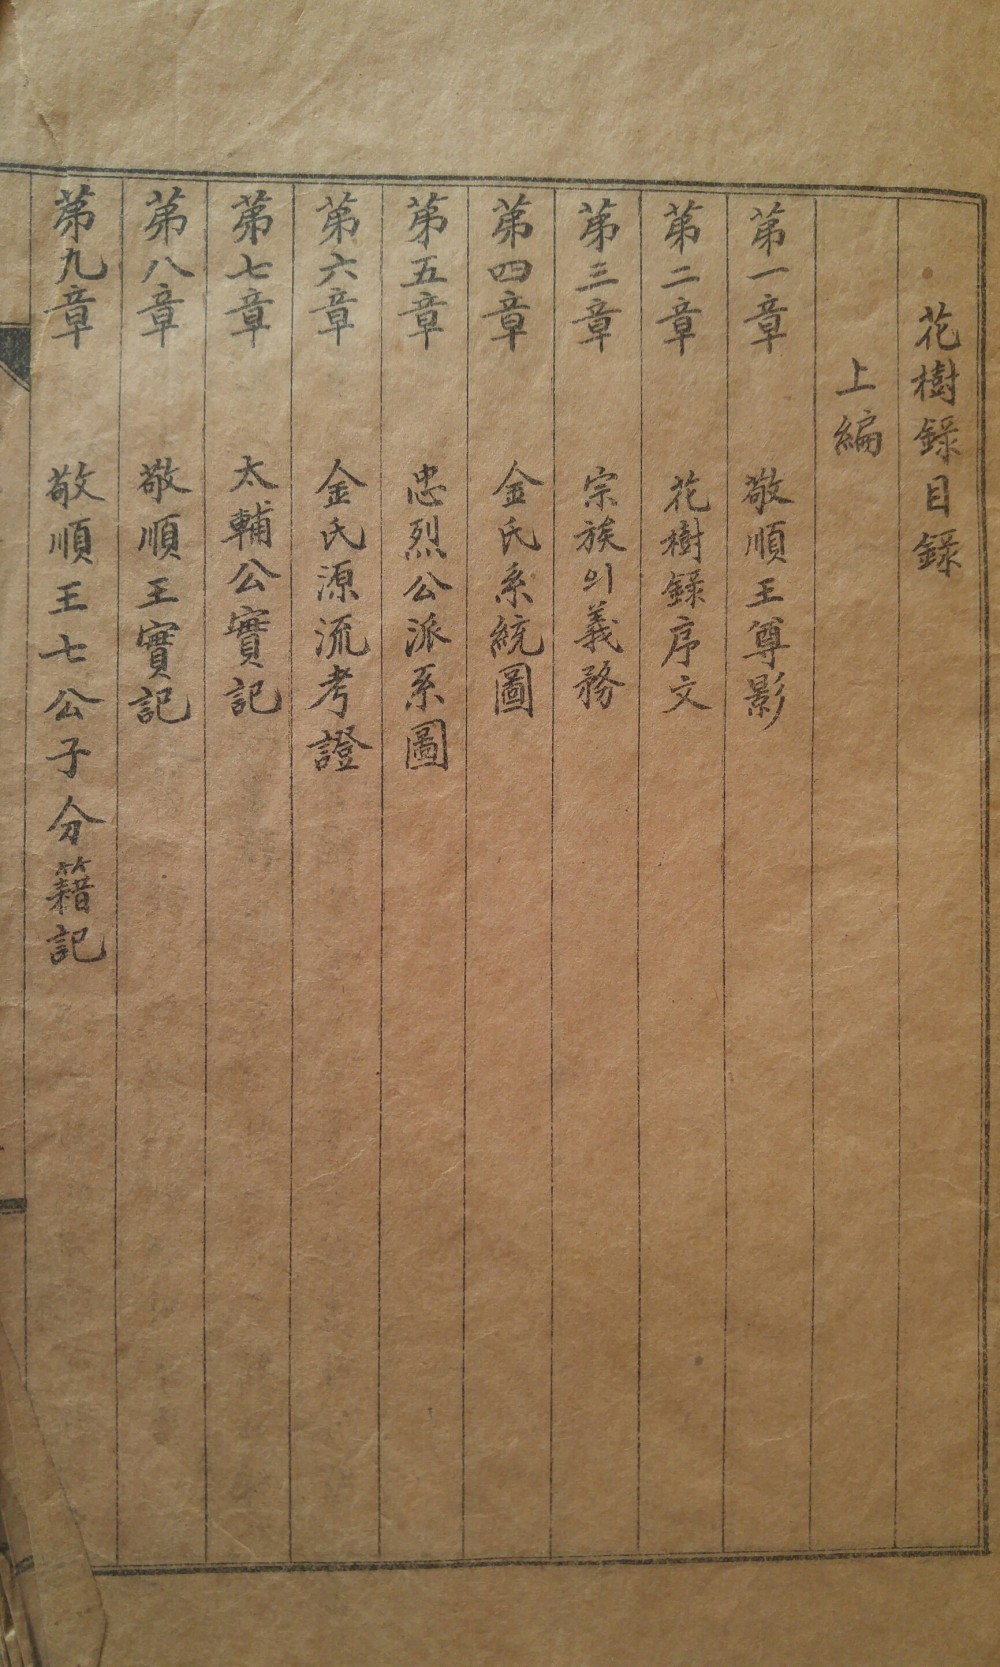 花樹錄目錄
上編
第一章 敬順王尊影
第二章 花樹錄序文
第三章 宗族의義務
第四章 金氏系統圖
第五章 忠烈公派系圖
第六章 金氏源流考證
第七章 太輔公實記
第八章 敬順王實記
第九章 敬順王七公子分籍記